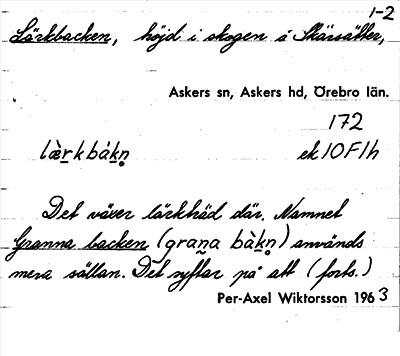 1-2
Lärkbacken, höjd i skogen å Skärsätter,
Askers sn, Askers hd, Örebro län.
172
lὰ̀r̠kbàk̠n̥ ek 10F1h
Det växer lärkträd där. Namnet
Granna backen (grana bàk̠n̥) används
mera sällan. Det syftar på att (forts.)
Per-Axel Wiktorsson 1963